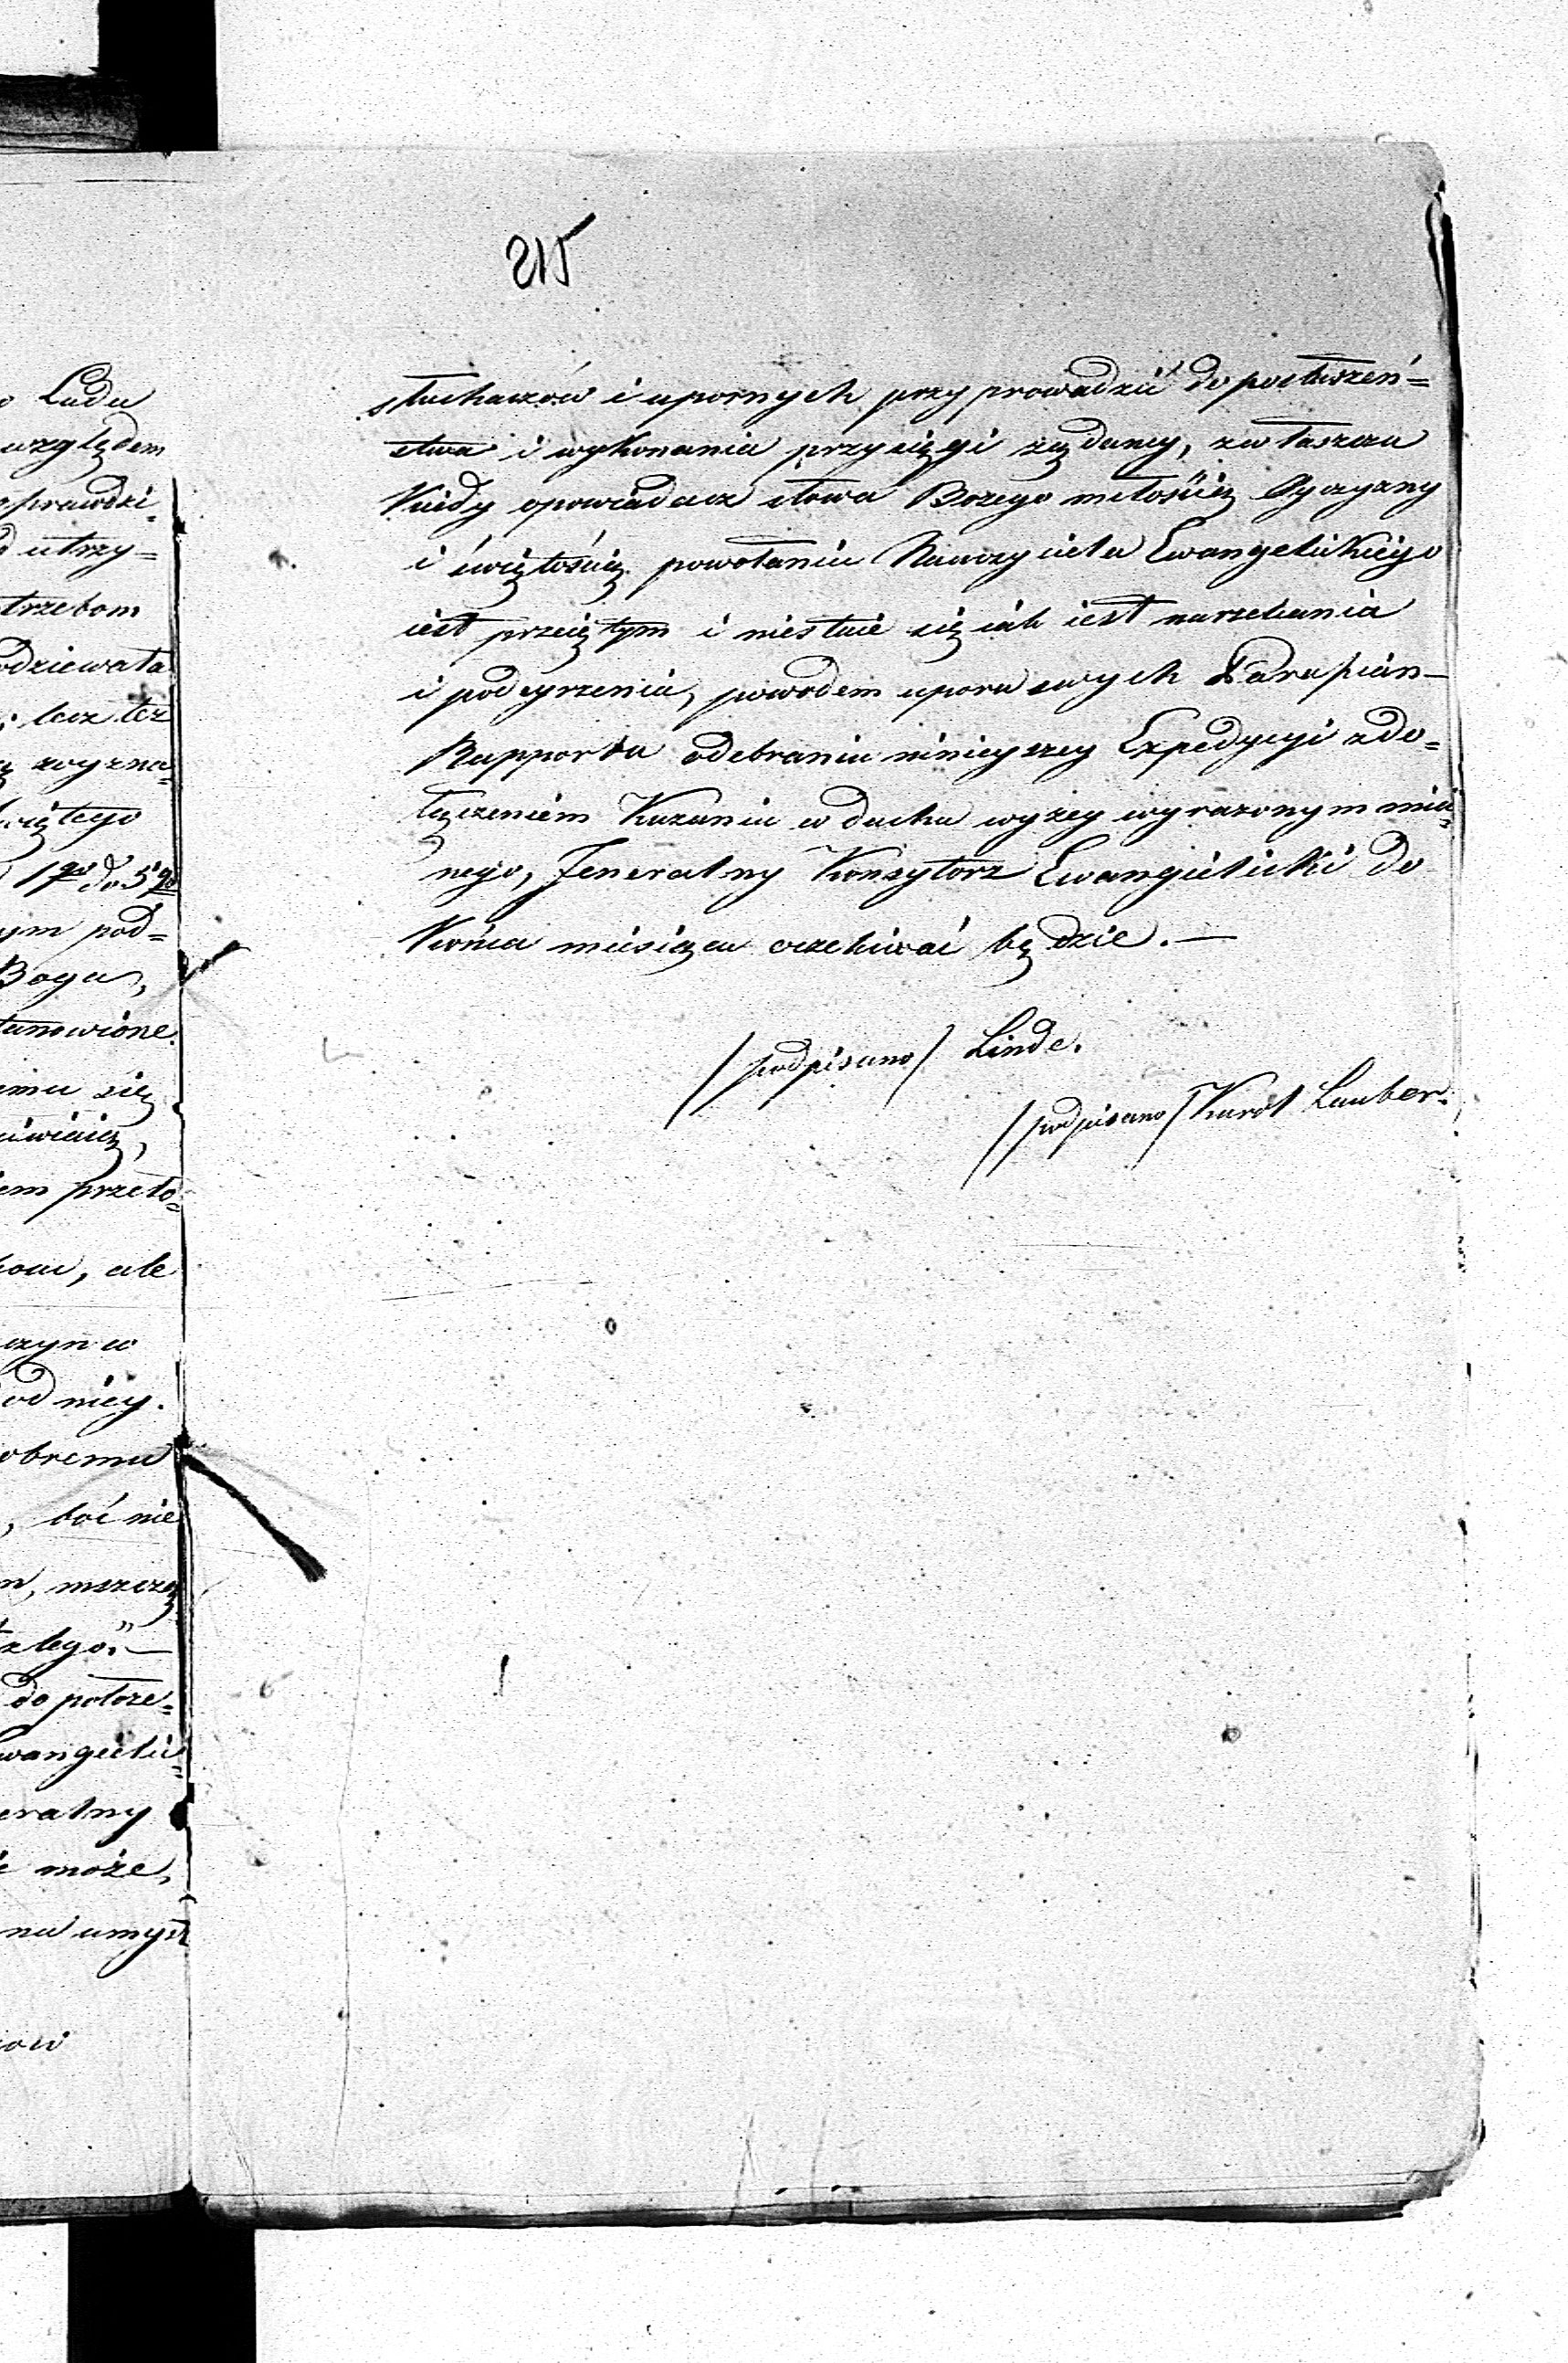 215
słuchaczów i upornych przyprowadzić do posłuszeń=
stwa i wykonania przysięgi żądaney, zwłaszcza
kiedy opowiadacz słowa Bozego miłością Oyczyzny
i świętością powołania Nauczyciela Ewangelickiego
iest przeiętym i niestaie się iak iest narzekania
i podeyrzenia, powodem uporu swych Parafian —
Rapportu odebrania ninieyszey Expedycyi z do=
łączeniem Kazania w duchu wyżey wyrazonym mia=
nego, Jeneralny Konsystorz Ewangielicki do
Końca miesiąca oczekiwać będzie. —
/podpisano/ Linde.
/podpisano/ Karol Lauber.
Ludu
względem
prawdzi=
utrzy=
trzebom
odziewała
; lecz też
zwyzna=
więtego
1go do 5go
ym pod=
Boga,
tanowione.
emu się
em przeło=
, ale
czyn w
od niey.
obremu
, boć nie
m, mszczą
złego." —
do położe=
wangieli=
eralny
może,
na umysł